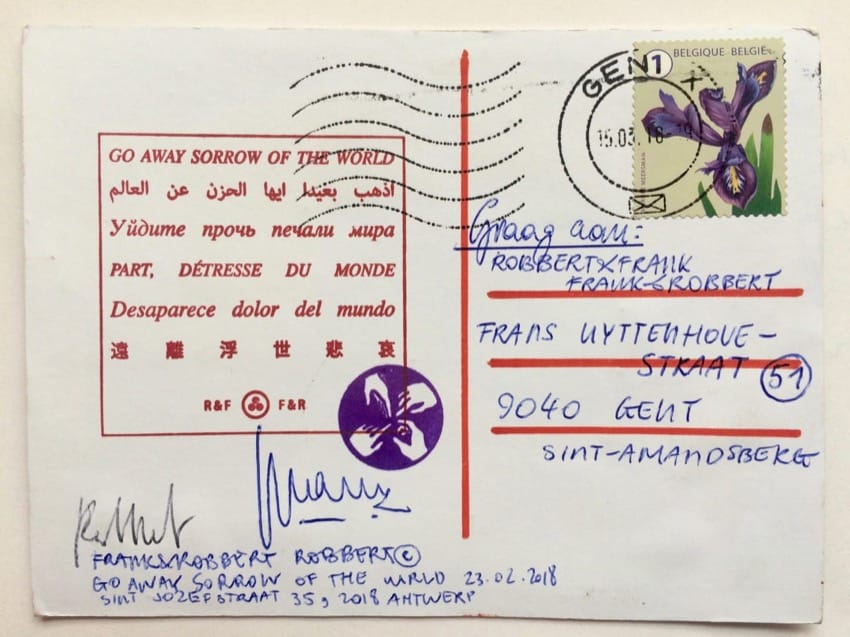 BELGIQUE BELGIË
1
GENT X
15.03.18
GO AWAY SORROW OF THE WORLD
اذهب بعيدا ايها الحزن عن العالم
Уйдите прочь печали мира
PART, DÉTRESSE DU MONDE
Desaparece dolor del mundo
遠 離 浮 世 悲 哀
R&F F&R
Graag aan:
ROBBERT&FRANK
FRANK&ROBBERT
FRANS UYTTENHOVE-
STRAAT 51
9040 GENT
SINT-AMANDSBERG
Robbert Frank
FRANK&ROBBERT ROBBERT©
GO AWAY SORROW OF THE WORLD 23.02.2018
SINT JOZEFSTRAAT 35, 2018 ANTWERP